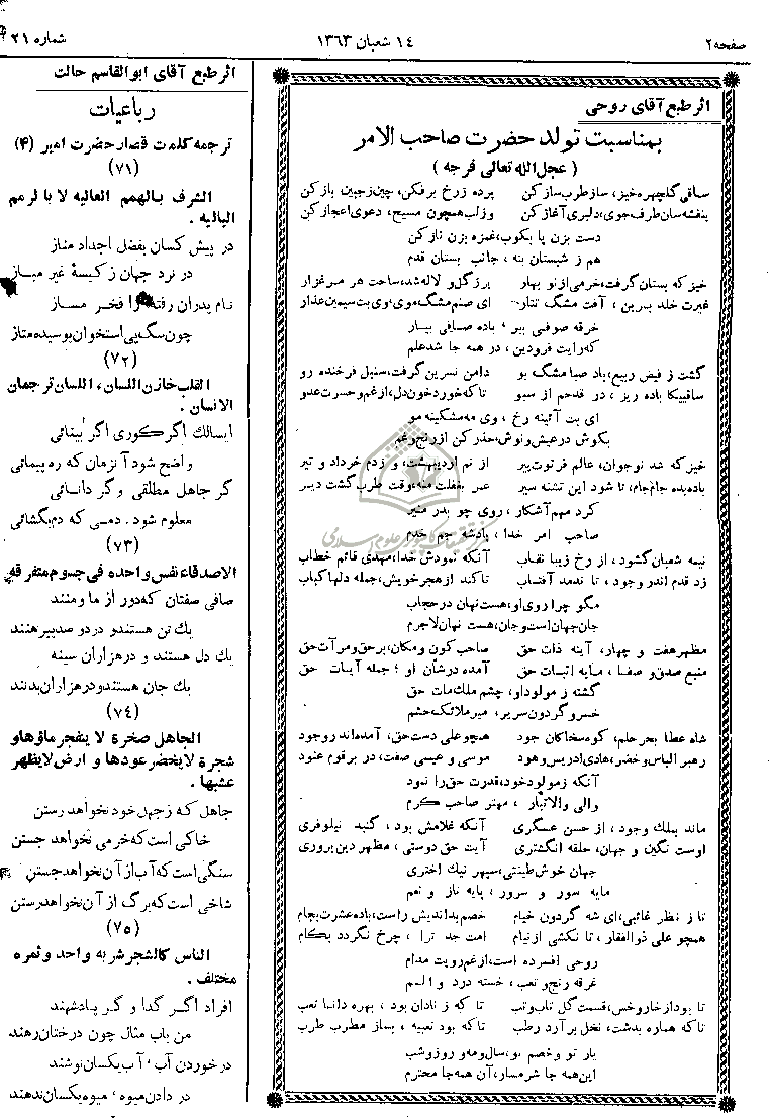 صفحه ۲
۱٤ شعبان ۱۳۶۳
شماره ۲۱
اثر طبع آقای روحی
بمناسبت تولد حضرت صاحب الامر
( عجل الله تعالی فرجه )
ساقی گلچهره خیز، ساز طرب ساز کن پرده ز رخ بر فکن، چین ز جبین باز کن
بنفشه سان طرف جوی، دلبری آغاز کن وز لب همچون مسیح، دعوی اعجاز کن
دست بزن پا بکوب، غمزه بزن ناز کن
هم ز شبستان بنه ، جانب بستان قدم
خیز که بستان گرفت، خرمی از نو بهار بر ز گل و لاله شد، ساحت هر مرغزار
غیرت خلد برین ، آفت مشگ تتار ای صنم مشگ موی، وی بت سیمین عذار
خرقه صوفی ببر ، باده صافی بیار
که رایت فرودین ، در همه جا شد علم
گشت ز فیض ربیع، باد صبا مشگ بو دامن نسرین گرفت، سنبل فرخنده رو
ساقیکا باده ریز ، در قدحم از سبو تا که خورد خون دل، از غم و حسرت عدو
ای بت آئینه رخ ، وی مه مشکینه مو
بکوش در عیش و نوش، حذر کن از رنج و غم
خیز که شد نوجوان، عالم فرتوت پیر از نم اردیبهشت، و زدم خرداد و تیر
باده بده جام جام، تا شود این تشنه سیر عمر بغفلت منه، وقت طرب گشت دیر
کرد مهم آشکار ، روی چو بدر منیر
صاحب امر خدا ، پادشه جم خدم
نیمه شعبان گشود، از رخ زیبا نقاب آنکه نمودش خدا، مهدی قائم خطاب
زد قدم اندر وجود ، تا ندمد آفتاب تا کند از هجر خویش، جمله دلها کباب
مگو چرا روی او، هست نهان در حجاب
جان جهان است و جان، هست نهان لاجرم
مظهر هفت و چهار، آینه ذات حق صاحب کون و مکان، بر حق و مرآت حق
منبع صدق و صفا ، مایه اثبات حق آمده در شأن او ، جمله آیات حق
گشته ز مولود او، چشم ملک مات حق
خسرو گردون سریر، میر ملائک حشم
شاه عطا بحر حلم، کوه سخا کان جود همچو علی دست حق، آمده اند ر وجود
رهبر الیاس و خضر، هادی ادریس و هود موسی و عیسی صفت، در بر قوم عنود
آنکه ز مولود خود، قدرت حق را نمود
والی والاتبار ، مهتر صاحب کرم
ماند بملک وجود ، از حسن عسگری آنکه غلامش بود ، گنبد نیلوفری
اوست نگین و جهان، حلقه انگشتری آیت حق دوستی ، مظهر دین پروری
جهان خوش طینتی، سپهر نیک اختری
مایه سور و سرور ، پایه ناز و نعم
تا ز نظر غائبی، ای شه گردون خیام خصم بداندیش راست، باده عشرت بجام
همچو علی ذوالفقار ، تا نکشی از نیام امت جد ترا ، چرخ نگردد بکام
روحی افسرده است، از غم رویت مدام
غرقه رنج و تعب ، خسته درد و الم
تا بود از خار و خس، قسمت گل تاب و تب تا که ز نادان بود ، بهره دانا تعب
تا که هماره بدشت، نخل بر آرد رطب تا که بود تعبیه ، بساز مطرب طرب
یار تو و خصم تو، سال و مه و روز و شب
این همه جا شرمسار، آن همه جا محترم
اثر طبع آقای ابوالقاسم حالت
رباعیات
ترجمه کلمات قصار حضرت امیر (۴)
(۷۱)
الشرف بالهمم العالیه لا بالرمم
البالیه .
در پیش کسان بفضل اجداد مناز
در نرد جهان ز کیسۀ غیر مباز
نام پدران رفته را فخر مساز
چون سگ بی استخوان پوسیده متاز
(۷۲)
القلب خازن اللسان، اللسان ترجمان
الانسان .
ایسالک اگر کوری اگر بینائی
واضح شود آنزمان که ره پیمائی
گر جاهل مطلقی وگر دانائی
معلوم شود، دمی که دم بگشائی
(۷۳)
الاصدقاء نفس واحده فی جسوم متفرقه
صافی صفتان که دور از ما و منند
یک تن هستند و در دو صد پیرهنند
یک دل هستند و در هزاران سینه
یک جان هستند و در هزاران بدنند
(۷٤)
الجاهل صخرة لا ینفجر ماؤها و
شجرة لا یخضر عودها و ارض لا یظهر
عشبها .
جاهل که ز جهل خود نخواهد رستن
خاکی است که خرمی نخواهد جستن
سنگی است که آب از آن نخواهد جستن
شاخی است که برگ از آن نخواهد رستن
(۷۵)
الناس کالشجر شربه واحد و ثمره
مختلف .
افراد اگر گدا و گر پادشهند
من باب مثال چون درختان رهند
در خوردن آب ، آب یکسان نوشند
در دادن میوه ، میوه یکسان ندهند
مرکز تحقیقات کامپیوتری علوم اسلامی